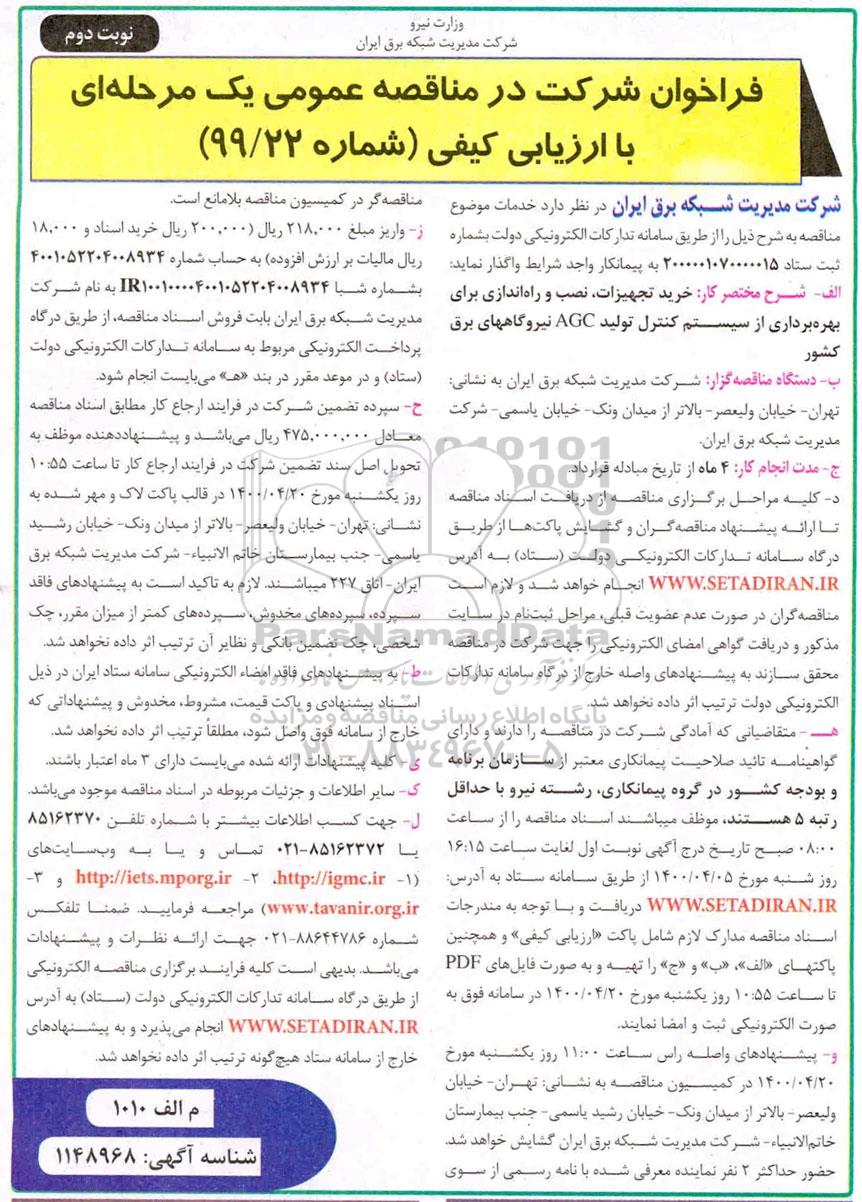 وزارت نیرو
شرکت مدیریت شبکه برق ایران
نوبت دوم
فراخوان شرکت در مناقصه عمومی یک مرحله‌ای
با ارزیابی کیفی (شماره ۹۹/۲۲)
شرکت مدیریت شبکه برق ایران در نظر دارد خدمات موضوع
مناقصه به شرح ذیل را از طریق سامانه تدارکات الکترونیکی دولت بشماره
ثبت ستاد ۲۰۰۰۰۰۱۰۷۰۰۰۰۰۱۵ به پیمانکار واجد شرایط واگذار نماید:
الف- شرح مختصر کار: خرید تجهیزات، نصب و راه‌اندازی برای
بهره‌برداری از سیستم کنترل تولید AGC نیروگاههای برق
کشور
ب- دستگاه مناقصه‌گزار: شرکت مدیریت شبکه برق ایران به نشانی:
تهران- خیابان ولیعصر- بالاتر از میدان ونک- خیابان یاسمی- شرکت
مدیریت شبکه برق ایران.
ج- مدت انجام کار: ۴ ماه از تاریخ مبادله قرارداد.
د- کلیه مراحل برگزاری مناقصه از دریافت اسناد مناقصه
تا ارائه پیشنهاد مناقصه‌گران و گشایش پاکت‌ها از طریق
درگاه سامانه تدارکات الکترونیکی دولت (ستاد) به آدرس
WWW.SETADIRAN.IR انجام خواهد شد و لازم است
مناقصه‌گران در صورت عدم عضویت قبلی، مراحل ثبت‌نام در سایت
مذکور و دریافت گواهی امضای الکترونیکی را جهت شرکت در مناقصه
محقق سازند به پیشنهادهای واصله خارج از درگاه سامانه تدارکات
الکترونیکی دولت ترتیب اثر داده نخواهد شد.
هـ - متقاضیانی که آمادگی شرکت در مناقصه را دارند و دارای
گواهینامه تائید صلاحیت پیمانکاری معتبر از سازمان برنامه
و بودجه کشور در گروه پیمانکاری، رشته نیرو با حداقل
رتبه ۵ هستند، موظف میباشند اسناد مناقصه را از ساعت
۰۸:۰۰ صبح تاریخ درج آگهی نوبت اول لغایت ساعت ۱۶:۱۵
روز شنبه مورخ ۱۴۰۰/۰۴/۰۵ از طریق سامانه ستاد به آدرس:
WWW.SETADIRAN.IR دریافت و با توجه به مندرجات
اسناد مناقصه مدارک لازم شامل پاکت «ارزیابی کیفی» و همچنین
پاکتهای «الف»، «ب» و «ج» را تهیه و به صورت فایل‌های PDF
تا ساعت ۱۰:۵۵ روز یکشنبه مورخ ۱۴۰۰/۰۴/۲۰ در سامانه فوق به
صورت الکترونیکی ثبت و امضا نمایند.
و- پیشنهادهای واصله راس ساعت ۱۱:۰۰ روز یکشنبه مورخ
۱۴۰۰/۰۴/۲۰ در کمیسیون مناقصه به نشانی: تهران- خیابان
ولیعصر- بالاتر از میدان ونک- خیابان رشید یاسمی- جنب بیمارستان
خاتم‌الانبیاء- شرکت مدیریت شبکه برق ایران گشایش خواهد شد.
حضور حداکثر ۲ نفر نماینده معرفی شده با نامه رسمی از سوی
مناقصه‌گر در کمیسیون مناقصه بلامانع است.
ز- واریز مبلغ ۲۱۸,۰۰۰ ریال (۲۰۰,۰۰۰ ریال خرید اسناد و ۱۸,۰۰۰
ریال مالیات بر ارزش افزوده) به حساب شماره ۴۰۰۱۰۵۲۲۰۴۰۰۸۹۳۴
بشماره شبا IR۱۰۰۱۰۰۰۰۴۰۰۱۰۵۲۲۰۴۰۰۸۹۳۴ به نام شرکت
مدیریت شبکه برق ایران بابت فروش اسناد مناقصه، از طریق درگاه
پرداخت الکترونیکی مربوط به سامانه تدارکات الکترونیکی دولت
(ستاد) و در موعد مقرر در بند «هـ» می‌بایست انجام شود.
ح- سپرده تضمین شرکت در فرایند ارجاع کار مطابق اسناد مناقصه
معادل ۴۷۵,۰۰۰,۰۰۰ ریال می‌باشد و پیشنهاددهنده موظف به
تحویل اصل سند تضمین شرکت در فرایند ارجاع کار تا ساعت ۱۰:۵۵
روز یکشنبه مورخ ۱۴۰۰/۰۴/۲۰ در قالب پاکت لاک و مهر شده به
نشانی: تهران- خیابان ولیعصر- بالاتر از میدان ونک- خیابان رشید
یاسمی- جنب بیمارستان خاتم الانبیاء- شرکت مدیریت شبکه برق
ایران- اتاق ۲۲۷ میباشند. لازم به تاکید است به پیشنهادهای فاقد
سپرده، سپرده‌های مخدوش، سپرده‌های کمتر از میزان مقرر، چک
شخصی، چک تضمین بانکی و نظایر آن ترتیب اثر داده نخواهد شد.
ط- به پیشنهادهای فاقد امضاء الکترونیکی سامانه ستاد ایران در ذیل
اسناد پیشنهادی و پاکت قیمت، مشروط، مخدوش و پیشنهاداتی که
خارج از سامانه فوق واصل شود، مطلقاً ترتیب اثر داده نخواهد شد.
ی- کلیه پیشنهادات ارائه شده می‌بایست دارای ۳ ماه اعتبار باشند.
ک- سایر اطلاعات و جزئیات مربوطه در اسناد مناقصه موجود می‌باشد.
ل- جهت کسب اطلاعات بیشتر با شماره تلفن ۸۵۱۶۲۳۷۰
یا ۸۵۱۶۲۳۷۲-۰۲۱ تماس و یا به وب‌سایت‌های
(۱- http://igmc.ir، ۲- http://iets.mporg.ir و ۳-
www.tavanir.org.ir) مراجعه فرمایید. ضمنا تلفکس
شماره ۸۸۶۴۴۷۸۶-۰۲۱ جهت ارائه نظرات و پیشنهادات
می‌باشد. بدیهی است کلیه فرایند برگزاری مناقصه الکترونیکی
از طریق درگاه سامانه تدارکات الکترونیکی دولت (ستاد) به آدرس
WWW.SETADIRAN.IR انجام می‌پذیرد و به پیشنهادهای
خارج از سامانه ستاد هیچ‌گونه ترتیب اثر داده نخواهد شد.
م الف ۱۰۱۰
شناسه آگهی: ۱۱۴۸۹۶۸
ParsNamadData
پایگاه اطلاع رسانی مناقصه و مزایده
۰۲۱-۸۸۳۴۹۶۷۰-۵